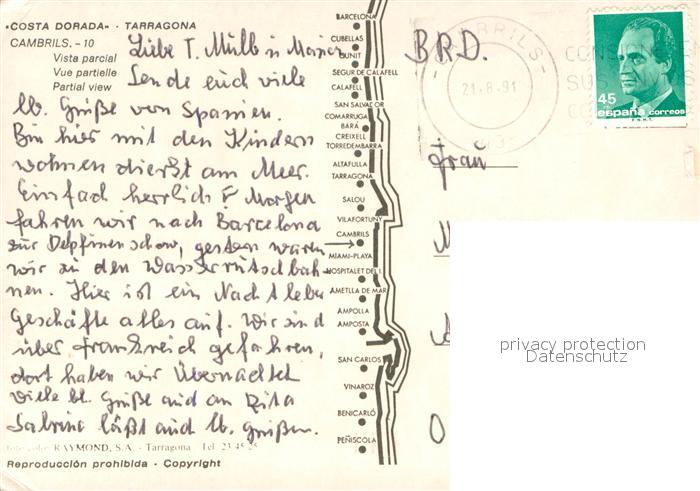 •COSTA DORADA• · TARRAGONA
CAMBRILS. – 10
Vista parcial
Vue partielle
Partial view
Liebe T. Mulb in Mainz
Sende euch viele
lb. Grüße von Spanien.
Bin hier mit den Kindern
wohnen direkt am Meer.
Einfach herrlich! Morgen
fahren wir nach Barcelona
zur Delpfinenschow, gestern waren
wir zu den Wasserrutschbah-
nen. Hier ist ein Nachtleben
Geschäfte alles auf. Wir sind
über Frankreich gefahren,
dort haben wir Übernachtet
Viele lb. Grüße auch an Rita
Sabrine läßt auch lb. grüßen.
RAYMOND, S.A. - Tarragona Tel. 23 45 25
Reproducción prohibida · Copyright
BARCELONA
CUBELLAS
CUNIT
SEGUR DE CALAFELL
CALAFELL
SAN SALVADOR
COMARRUGA
BARÁ
CREIXELL
TORREDEMBARRA
ALTAFULLA
TARRAGONA
SALOU
VILAFORTUNY
CAMBRILS
MIAMI-PLAYA
HOSPITALET DEL I.
AMETLLA DE MAR
AMPOLLA
AMPOSTA
SAN CARLOS
VINAROZ
BENICARLÓ
PEÑISCOLA
BRD.
Frau
21.8.91
45
españa correos
F.N.M.T.
privacy protection
Datenschutz